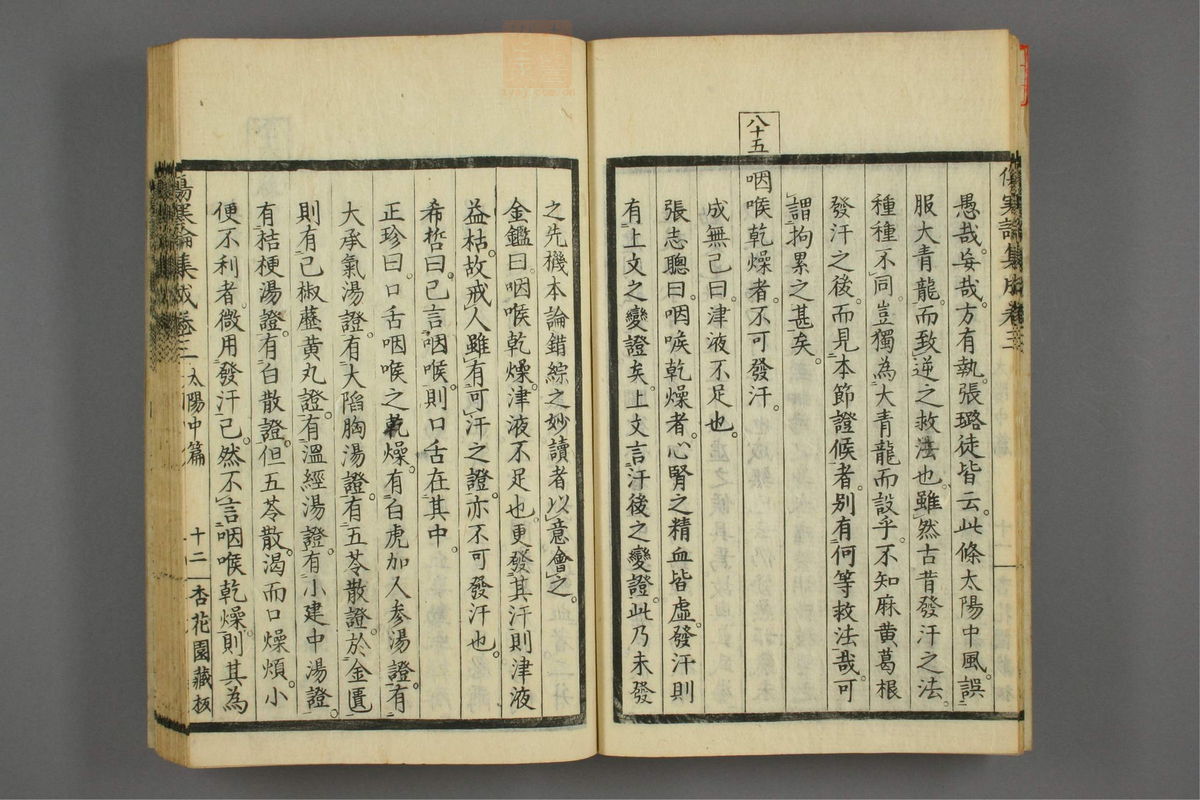 傷寒論集成卷三
愚哉。妄哉。方有執。張璐徒皆云。此條太陽中風。誤
服大青龍。而致逆之救法也。雖然古昔發汗之法。
種種不同。豈獨為大青龍而設乎。不知麻黄葛根
發汗之後。而見本節證候者。別有何等救法哉。可
謂拘累之甚矣。
八十五
咽喉乾燥者。不可發汗。
成無己曰。津液不足也。
張志聰曰。咽喉乾燥者。心腎之精血皆虛。發汗則
有上文之變證矣。上文言汗後之變證。此乃未發
之先機本論錯綜之妙讀者以意會之。
金鑑曰。咽喉乾燥。津液不足也。更發其汗則津液
益枯。故戒人雖有可汗之證。亦不可發汗也。
希哲曰。已言咽喉。則口舌在其中。
正珍曰。口舌咽喉之乾燥。有白虎加人参湯證。有
大承氣湯證。有大陷胸湯證。有五苓散證。於金匱
則有已椒藶黄丸證。有溫經湯證。有小建中湯證。
有桔梗湯證。有白散證。但五苓散。渴而口燥煩。小
便不利者。微用發汗已。然不言咽喉乾燥。則其為
傷寒論集成卷三 太陽中篇 十二 杏花園藏板